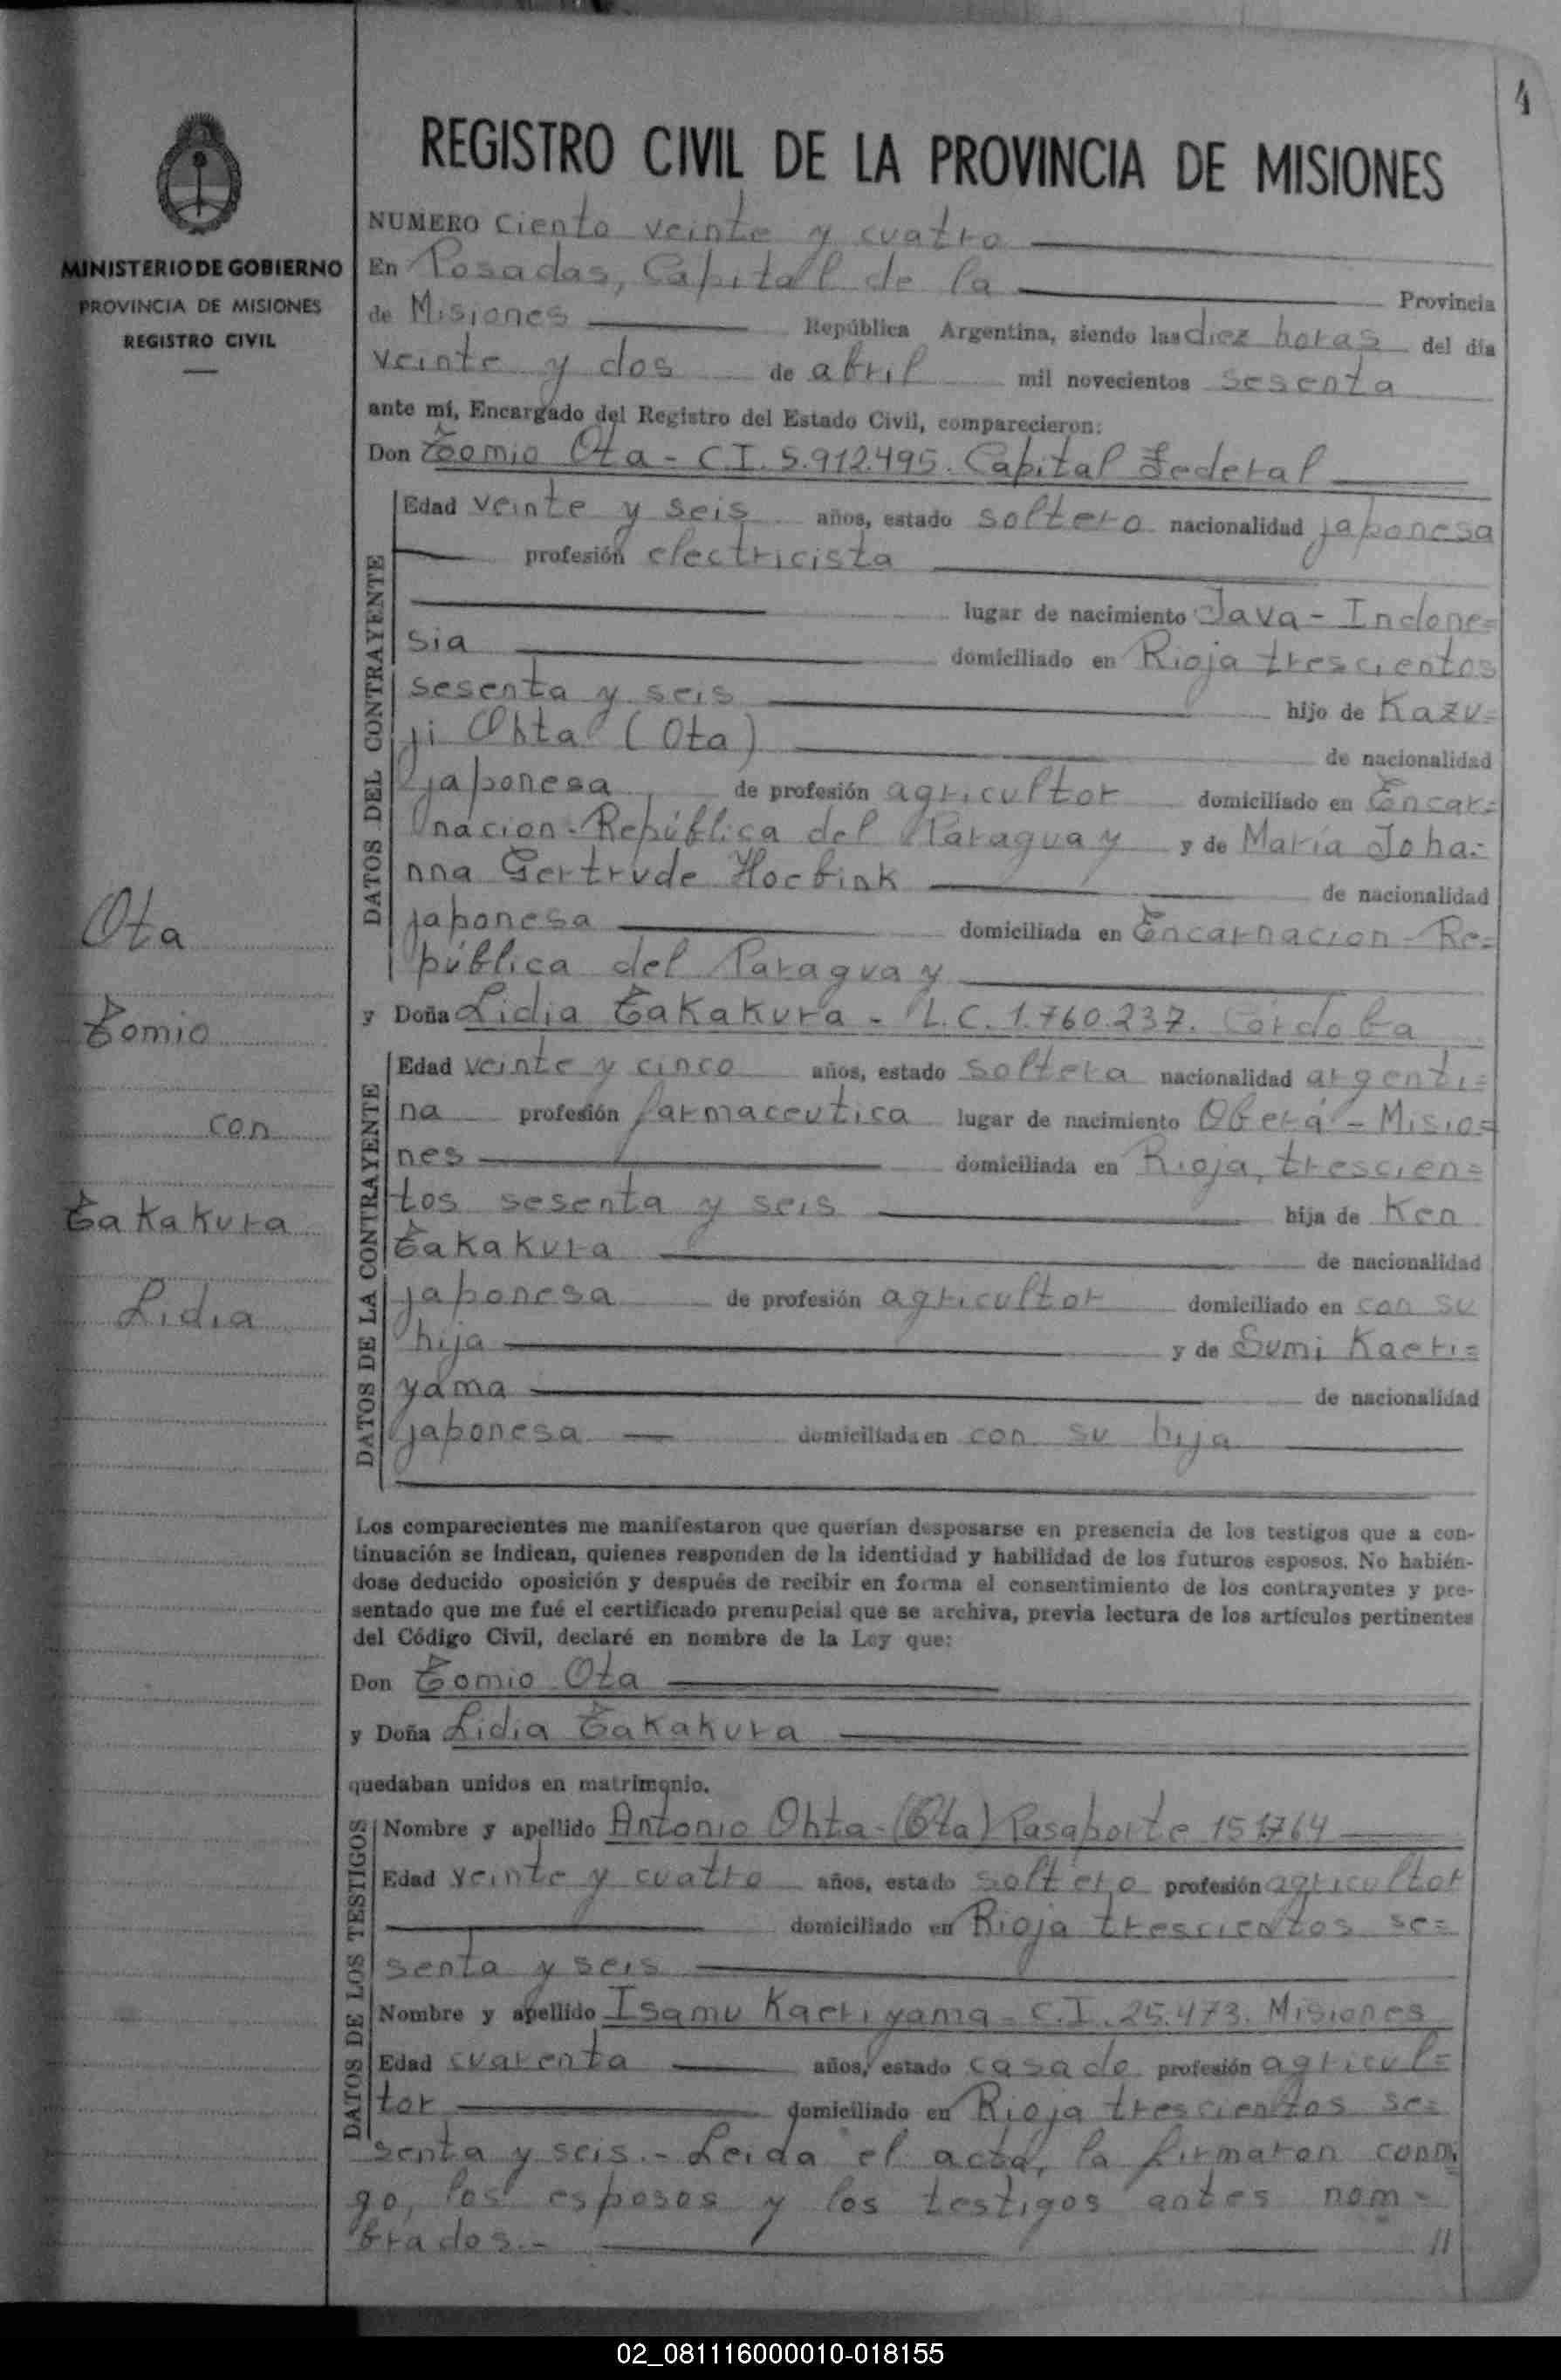 4
REGISTRO CIVIL DE LA PROVINCIA DE MISIONES
MINISTERIO DE GOBIERNO
PROVINCIA DE MISIONES
REGISTRO CIVIL
NUMERO ciento veinte y cuatro
En Posadas, Capital de la Provincia
de Misiones República Argentina, siendo las diez horas del día
veinte y dos de abril mil novecientos sesenta
ante mí, Encargado del Registro del Estado Civil, comparecieron:
Don Tomio Ota - C.I. 5.912.495. Capital Federal
DATOS DEL CONTRAYENTE
Edad veinte y seis años, estado soltero nacionalidad japonesa
profesión electricista
lugar de nacimiento Java - Indone=
sia domiciliado en Rioja trescientos
sesenta y seis hijo de Kazu=
ji Ohta (Ota) de nacionalidad
japonesa de profesión agricultor domiciliado en Encar=
nacion - República del Paraguay y de María Joha=
nna Gertrude Hoebink de nacionalidad
japonesa domiciliada en Encarnacion - Re=
pública del Paraguay
y Doña Lidia Takakura - L.C. 1.760.237. Córdoba
DATOS DE LA CONTRAYENTE
Edad veinte y cinco años, estado soltera nacionalidad argenti=
na profesión farmaceutica lugar de nacimiento Oberá - Misio=
nes domiciliada en Rioja, trescien=
tos sesenta y seis hija de Ken
Takakura de nacionalidad
japonesa de profesión agricultor domiciliado en con su
hija y de Sumi Kaeri=
yama de nacionalidad
japonesa domiciliada en con su hija
Ota
Tomio
con
Takakura
Lidia
Los comparecientes me manifestaron que querían desposarse en presencia de los testigos que a con-
tinuación se indican, quienes responden de la identidad y habilidad de los futuros esposos. No habién-
dose deducido oposición y después de recibir en forma el consentimiento de los contrayentes y pre-
sentado que me fué el certificado prenupcial que se archiva, previa lectura de los artículos pertinentes
del Código Civil, declaré en nombre de la Ley que:
Don Tomio Ota
y Doña Lidia Takakura
quedaban unidos en matrimonio.
DATOS DE LOS TESTIGOS
Nombre y apellido Antonio Ohta - (Ota) Pasaporte 151764
Edad veinte y cuatro años, estado soltero profesión agricultor
domiciliado en Rioja trescientos se=
senta y seis
Nombre y apellido Isamu Kaeriyama - C.I. 25.473. Misiones
Edad cuarenta años, estado casado profesión agricul=
tor domiciliado en Rioja trescientos se=
senta y seis.- Leida el acta, la firmaron conmi
go, los esposos y los testigos antes nom=
brados.- //
02_081116000010-018155